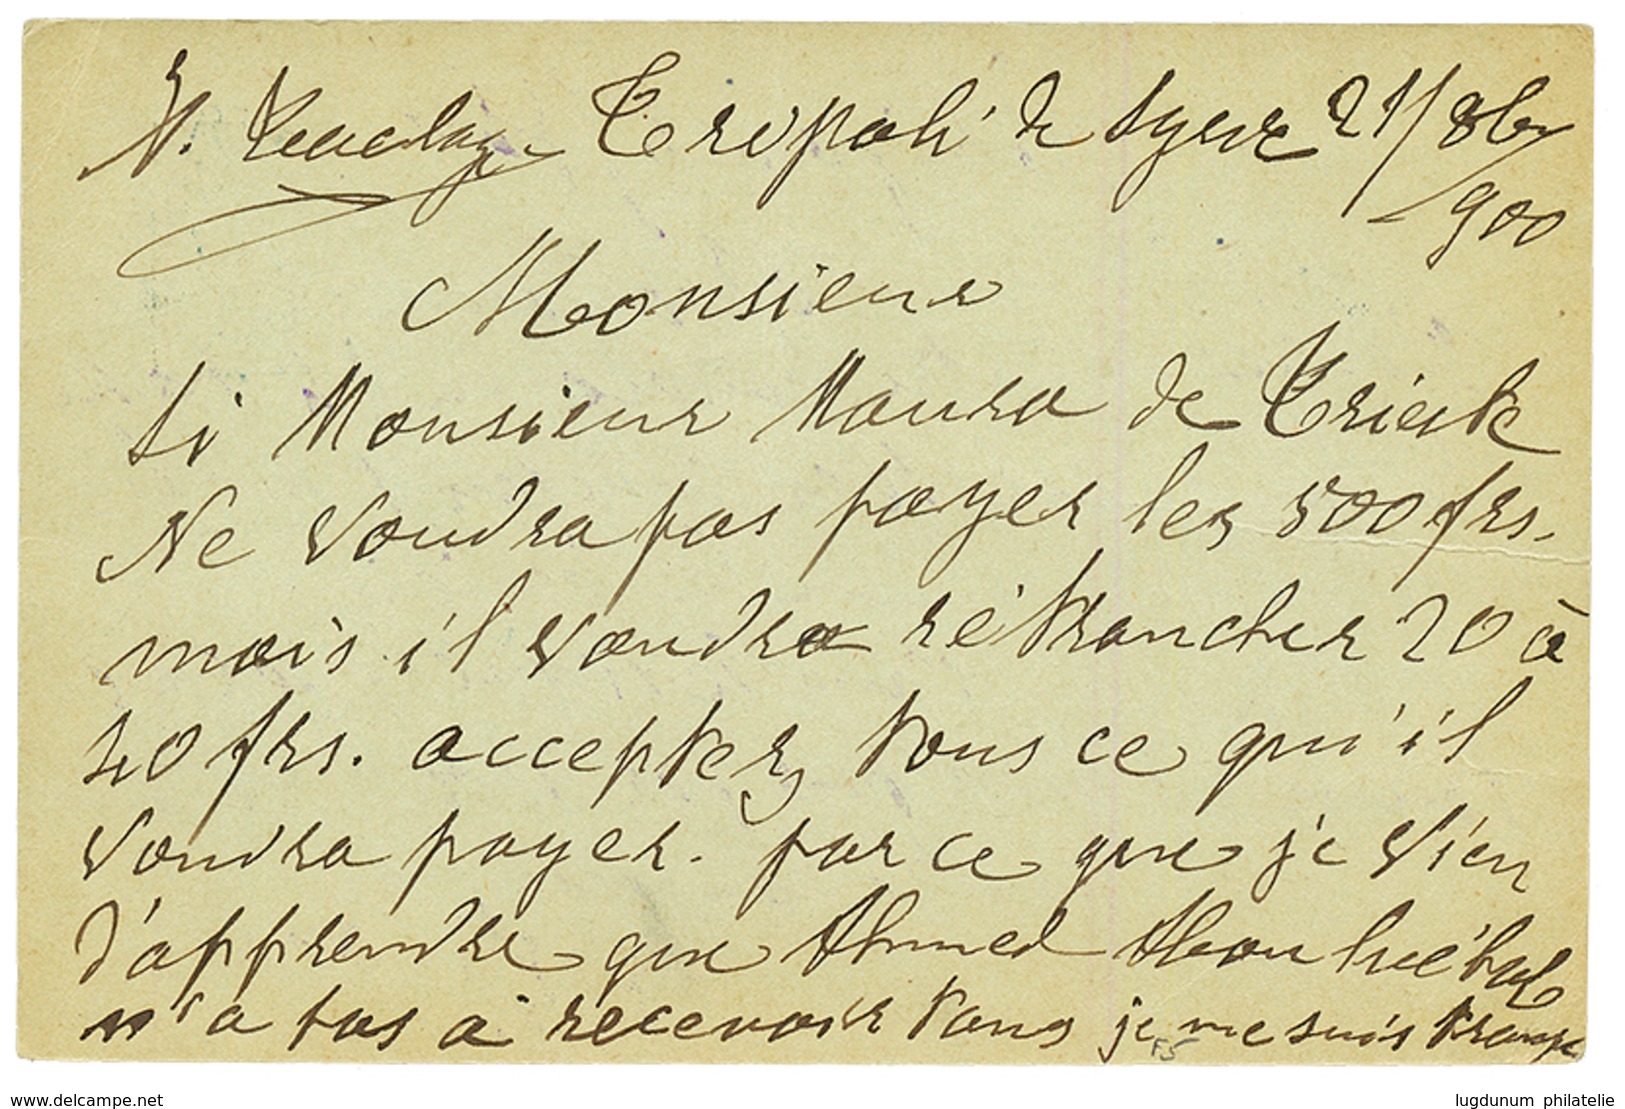 Tripoli de Syrie 21/8bre
/900
Monsieur
Si Monsieur Maura de Trieste
Ne voudra pas payer les 500 frs.
mais il voudra rétrancher 20 à
40 frs. acceptez tous ce qu'il
voudra payer. par ce que je vien
d'apprendre que Ahmed Abou
n'a pas à recevoir tans je me suis trompé
www.delcampe.net
lugdunum philatelie